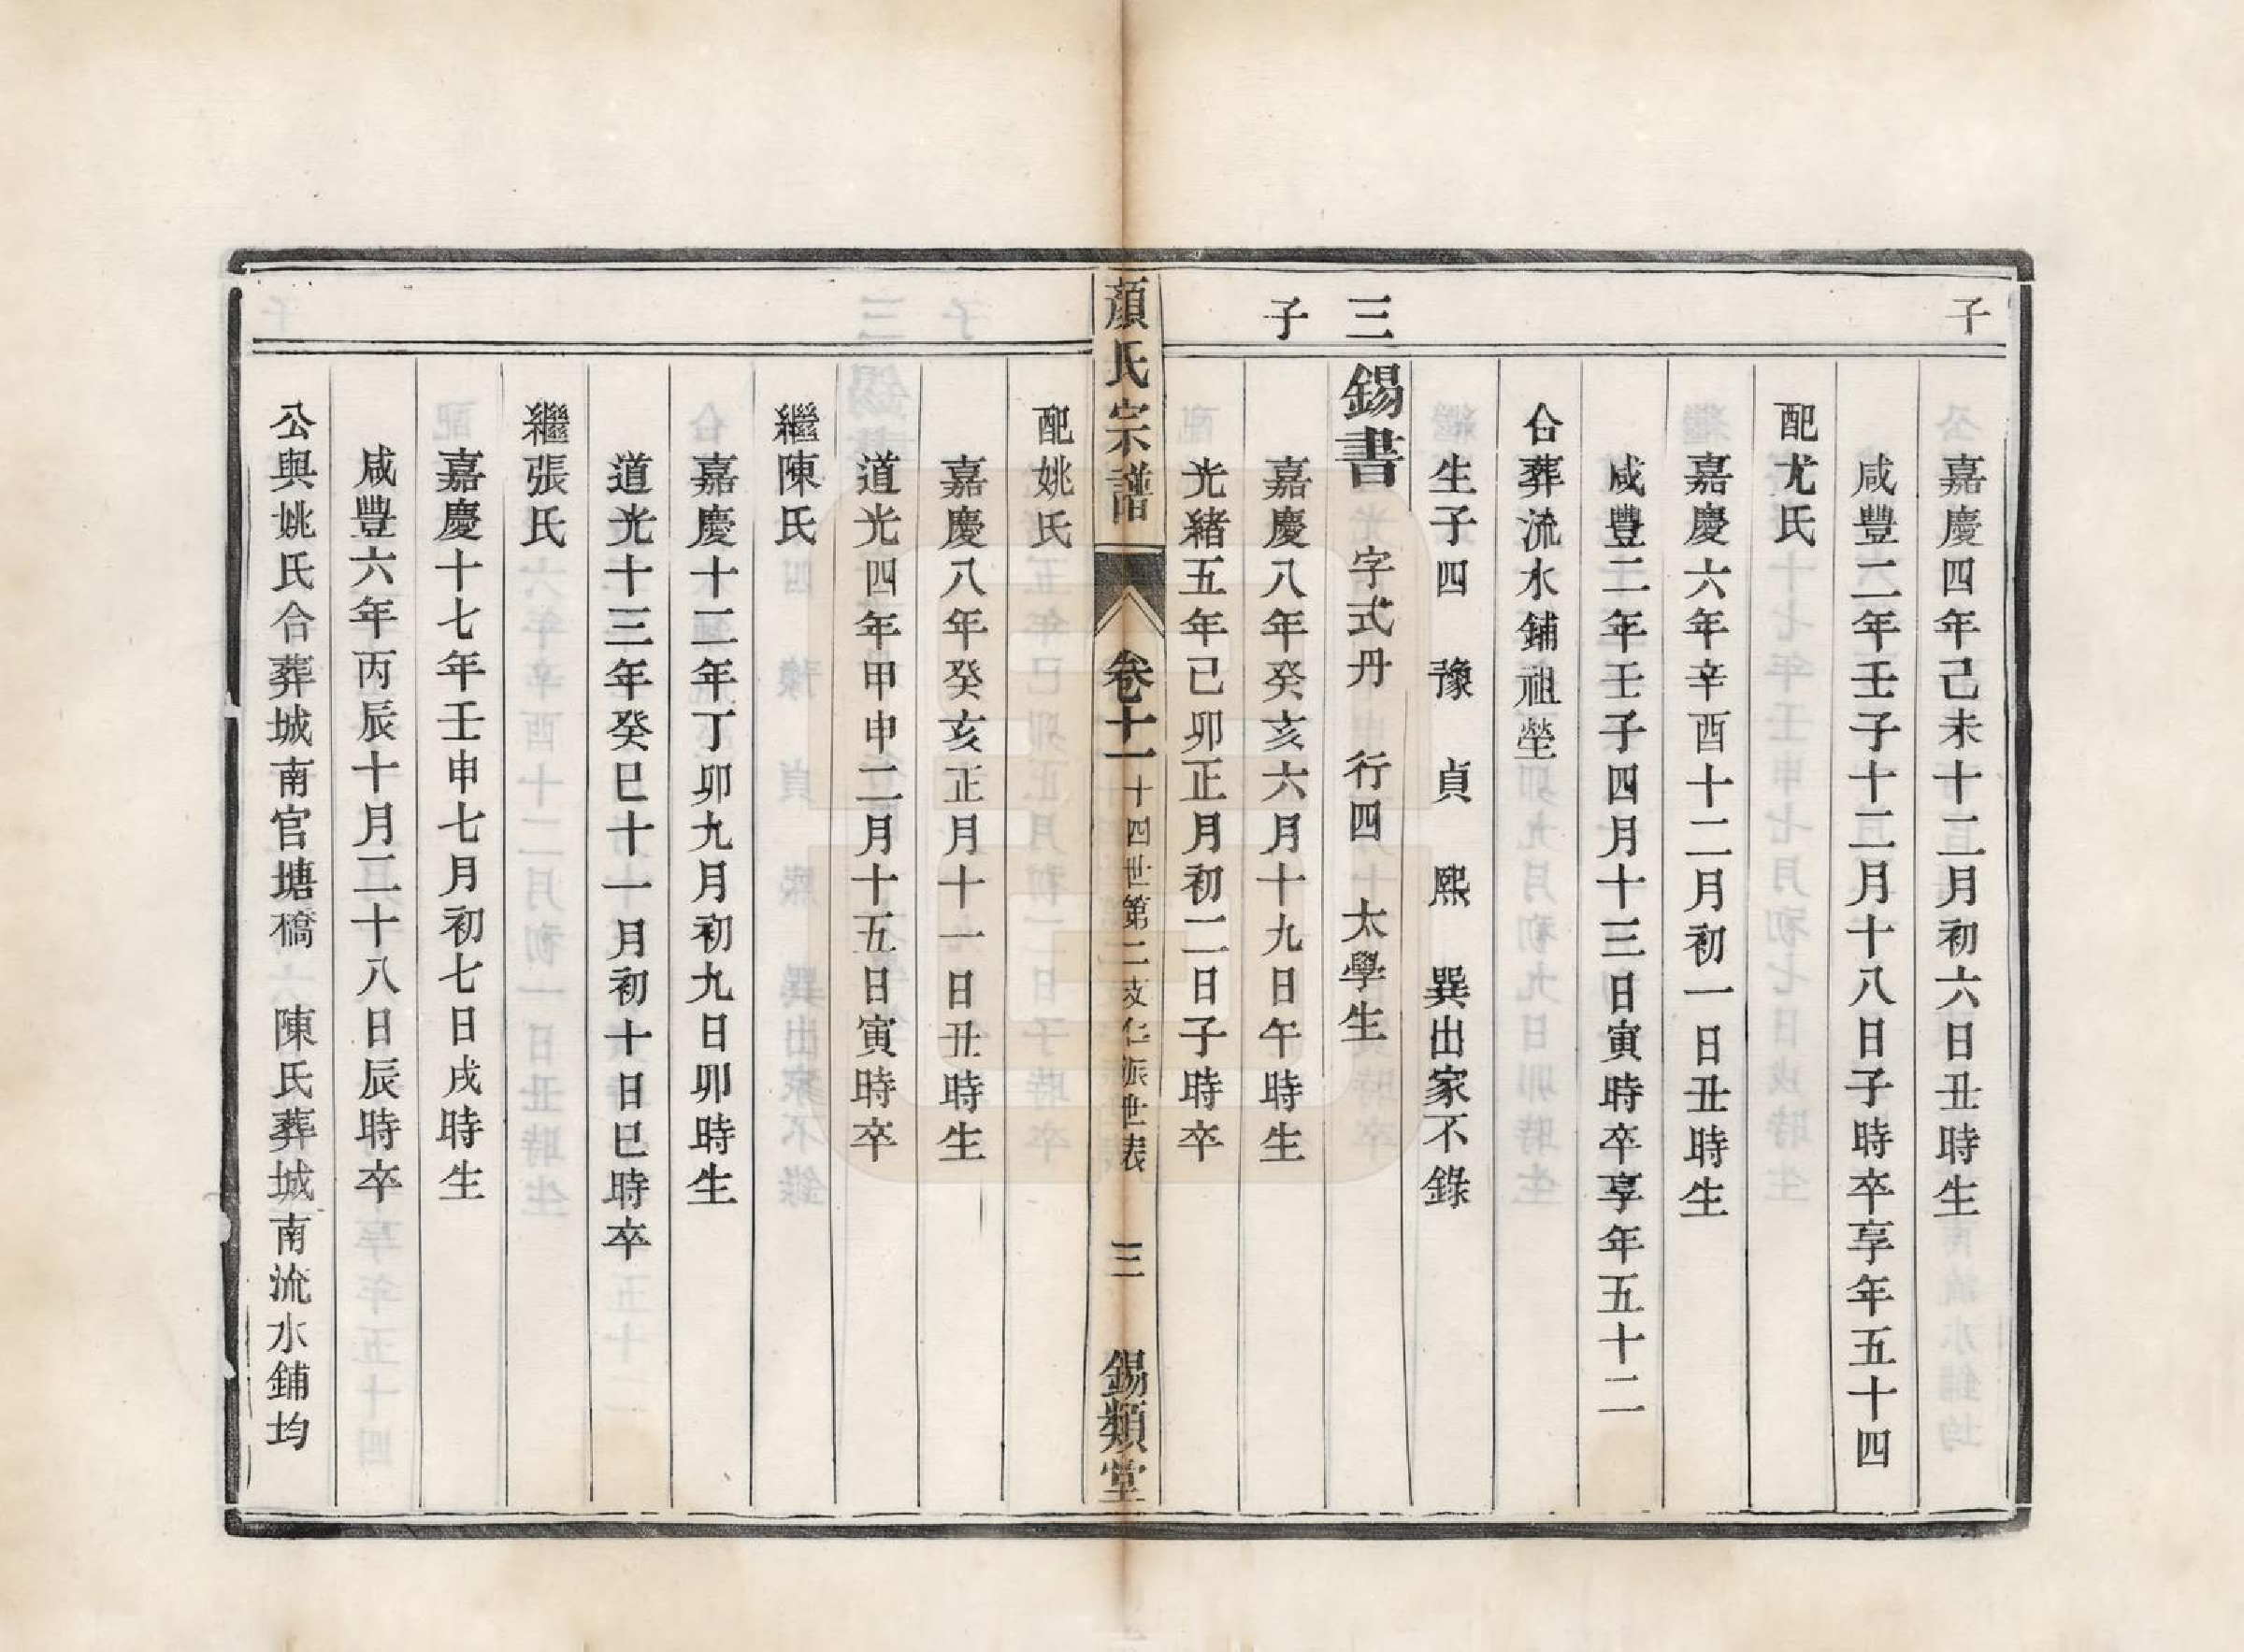 子
嘉慶四年己未十二月初六日丑時生
咸豐二年壬子十二月十八日子時卒享年五十四
配尤氏
嘉慶六年辛酉十二月初一日丑時生
咸豐二年壬子四月十三日寅時卒享年五十二
合葬流水鋪祖塋
生子四　豫　貞　熙　巽出家不錄
三
錫書　字式丹　行四　太學生
子
嘉慶八年癸亥六月十九日午時生
光緒五年己卯正月初二日子時卒
顏氏宗譜　卷十一　十四世第二支仁派世表　三　錫類堂
配姚氏
嘉慶八年癸亥正月十一日丑時生
道光四年甲申二月十五日寅時卒
繼陳氏
嘉慶十二年丁卯九月初九日卯時生
道光十三年癸巳十一月初十日巳時卒
繼張氏
嘉慶十七年壬申七月初七日戌時生
咸豐六年丙辰十月二十八日辰時卒
公與姚氏合葬城南官塘橋　陳氏葬城南流水鋪均